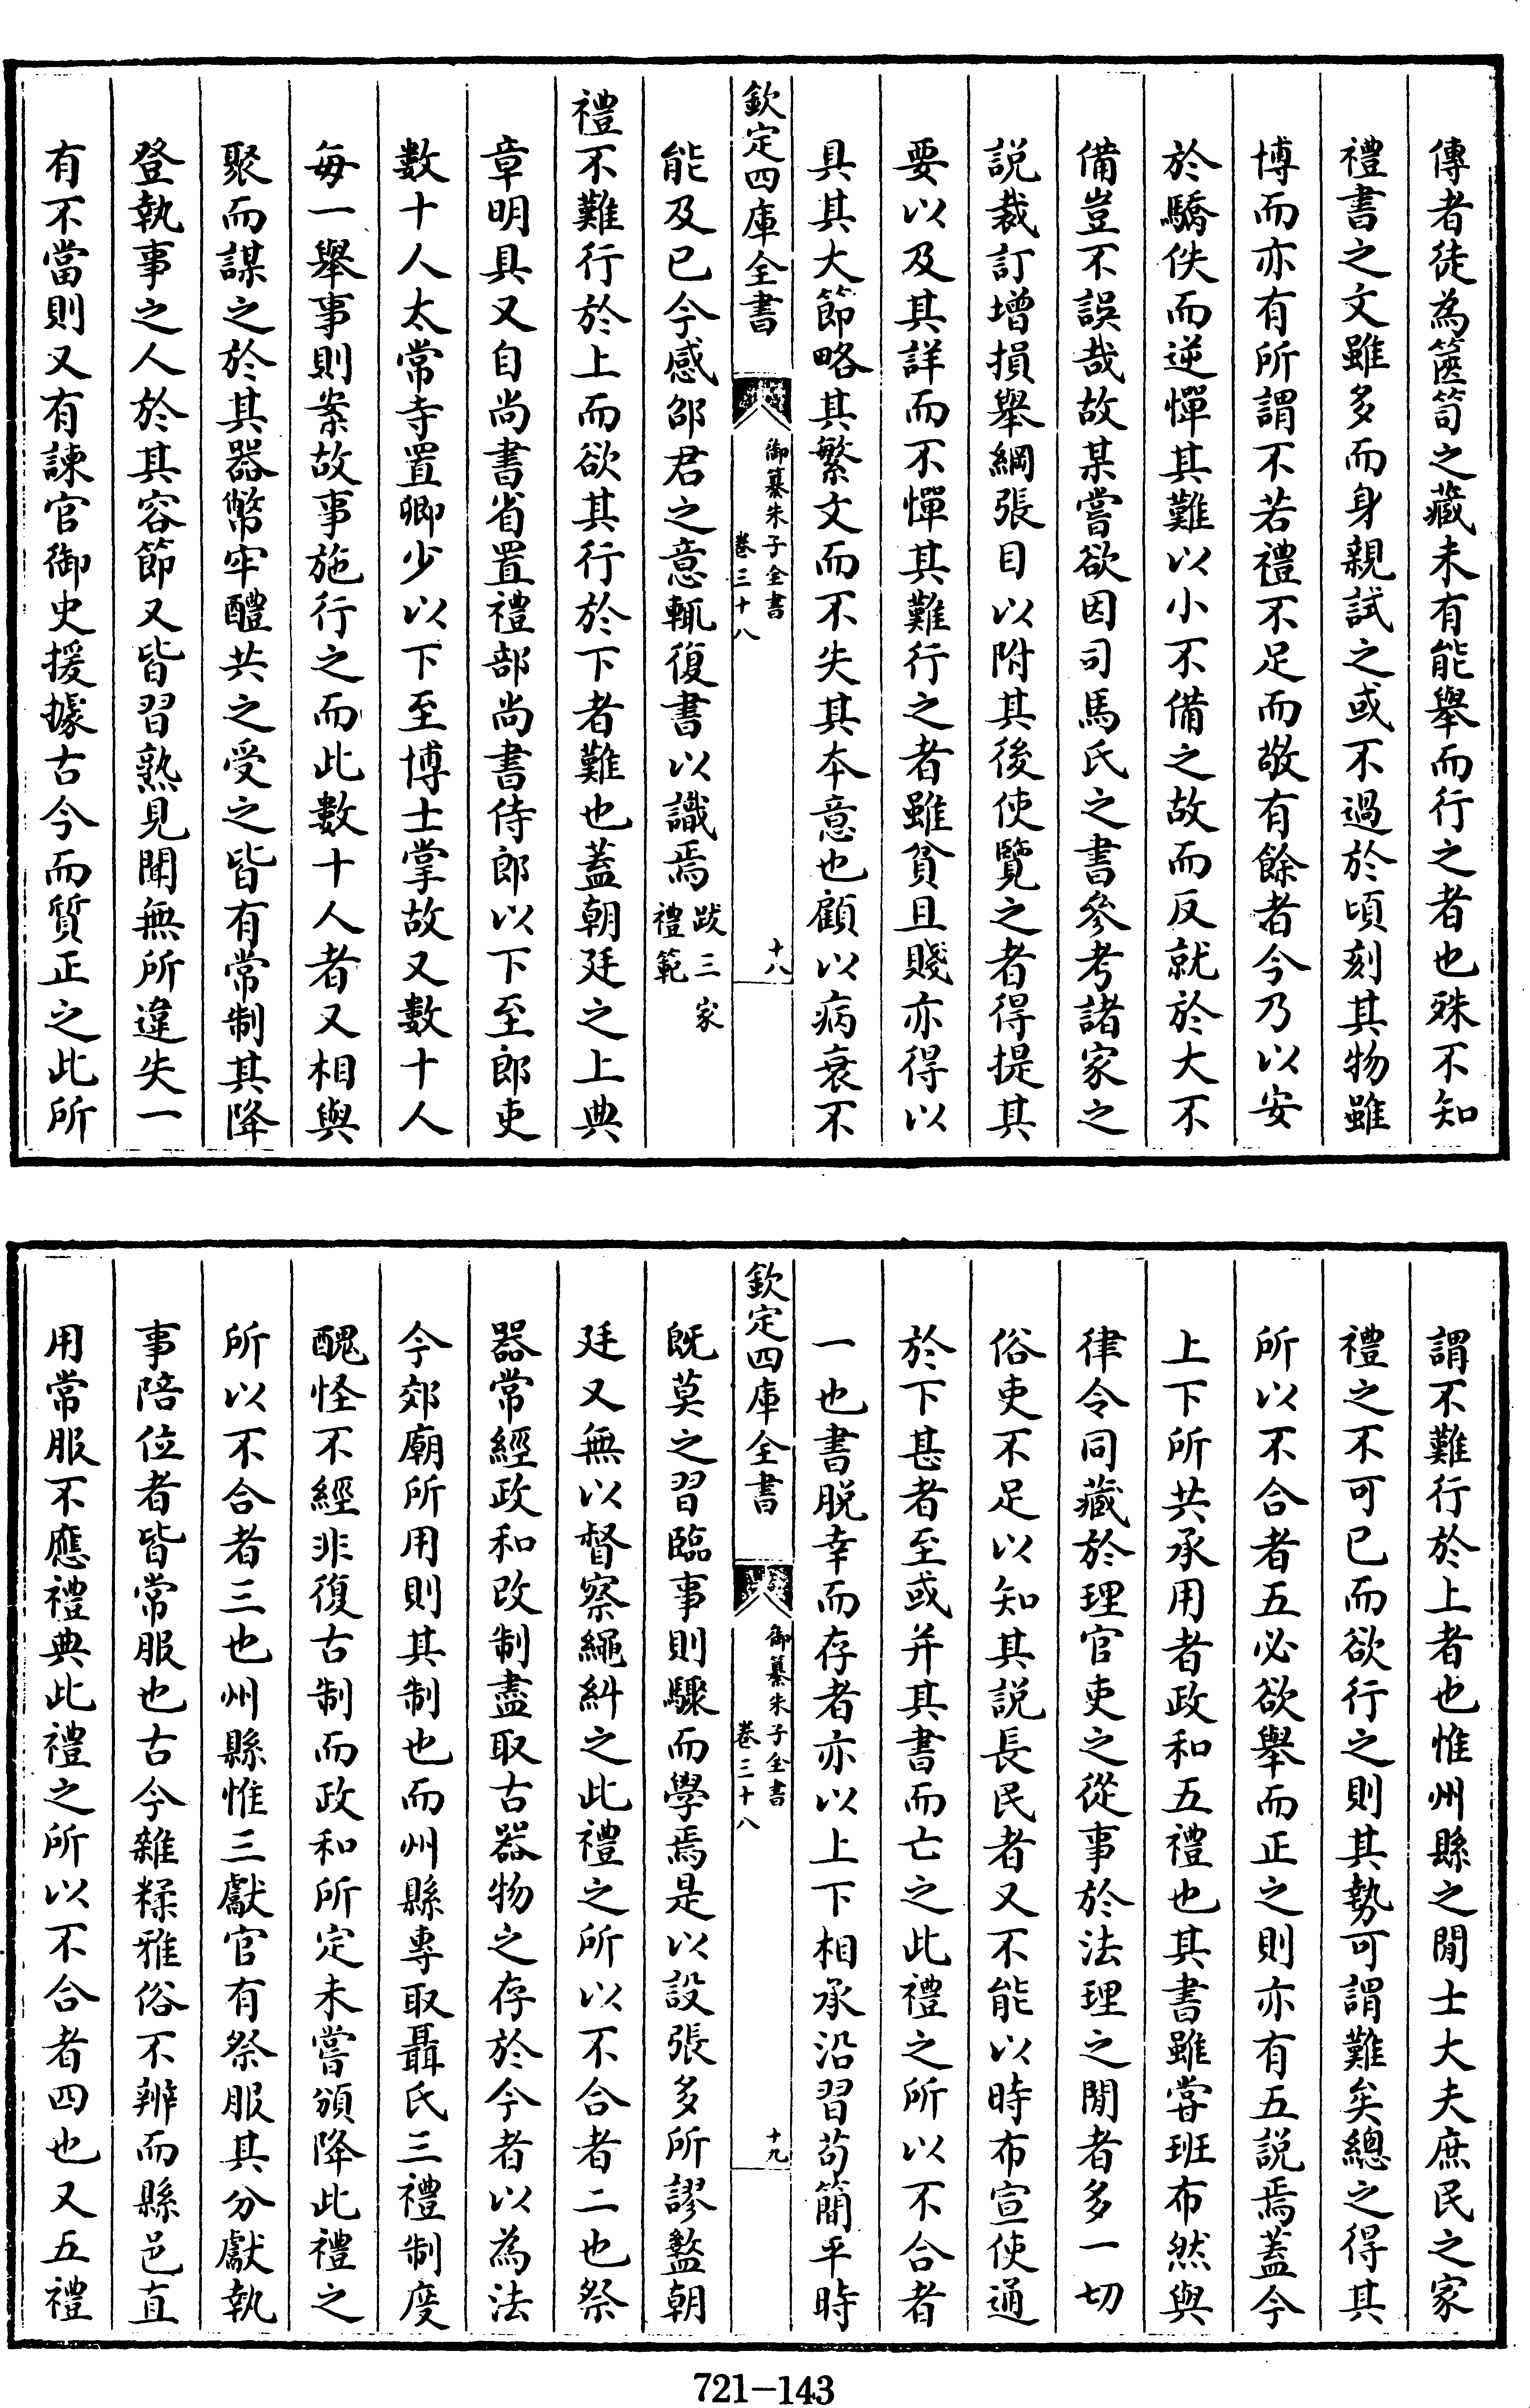 傳者徒為篋笥之藏未有能舉而行之者也殊不知
禮書之文雖多而身親試之或不過於頃刻其物雖
博而亦有所謂不若禮不足而敬有餘者今乃以安
於驕佚而逆憚其難以小不備之故而反就於大不
備豈不誤哉故某嘗欲因司馬氏之書參考諸家之
説裁訂增損舉綱張目以附其後使覽之者得提其
要以及其詳而不憚其難行之者雖貧且賤亦得以
具其大節略其繁文而不失其本意也顧以病衰不
欽定四庫全書
御纂朱子全書
卷三十八
十八
能及已今感邵君之意輒復書以識焉跋三家
禮範
禮不難行於上而欲其行於下者難也蓋朝廷之上典
章明具又自尚書省置禮部尚書侍郎以下至郎吏
數十人太常寺置卿少以下至博士掌故又數十人
每一舉事則案故事施行之而此數十人者又相與
聚而謀之於其器幣牢醴共之受之皆有常制其降
登執事之人於其容節又皆習熟見聞無所違失一
有不當則又有諫官御史援據古今而質正之此所
謂不難行於上者也惟州縣之閒士大夫庶民之家
禮之不可已而欲行之則其勢可謂難矣總之得其
所以不合者五必欲舉而正之則亦有五説焉蓋今
上下所共承用者政和五禮也其書雖嘗班布然與
律令同藏於理官吏之從事於法理之閒者多一切
俗吏不足以知其説長民者又不能以時布宣使通
於下甚者至或并其書而亡之此禮之所以不合者
一也書脱幸而存者亦以上下相承沿習苟簡平時
欽定四庫全書
御纂朱子全書
卷三十八
十九
既莫之習臨事則驟而學焉是以設張多所謬盭朝
廷又無以督察繩糾之此禮之所以不合者二也祭
器常經政和改制盡取古器物之存於今者以為法
今郊廟所用則其制也而州縣專取聶氏三禮制度
醜怪不經非復古制而政和所定未嘗頒降此禮之
所以不合者三也州縣惟三獻官有祭服其分獻執
事陪位者皆常服也古今雜糅雅俗不辨而縣邑直
用常服不應禮典此禮之所以不合者四也又五禮
721-143